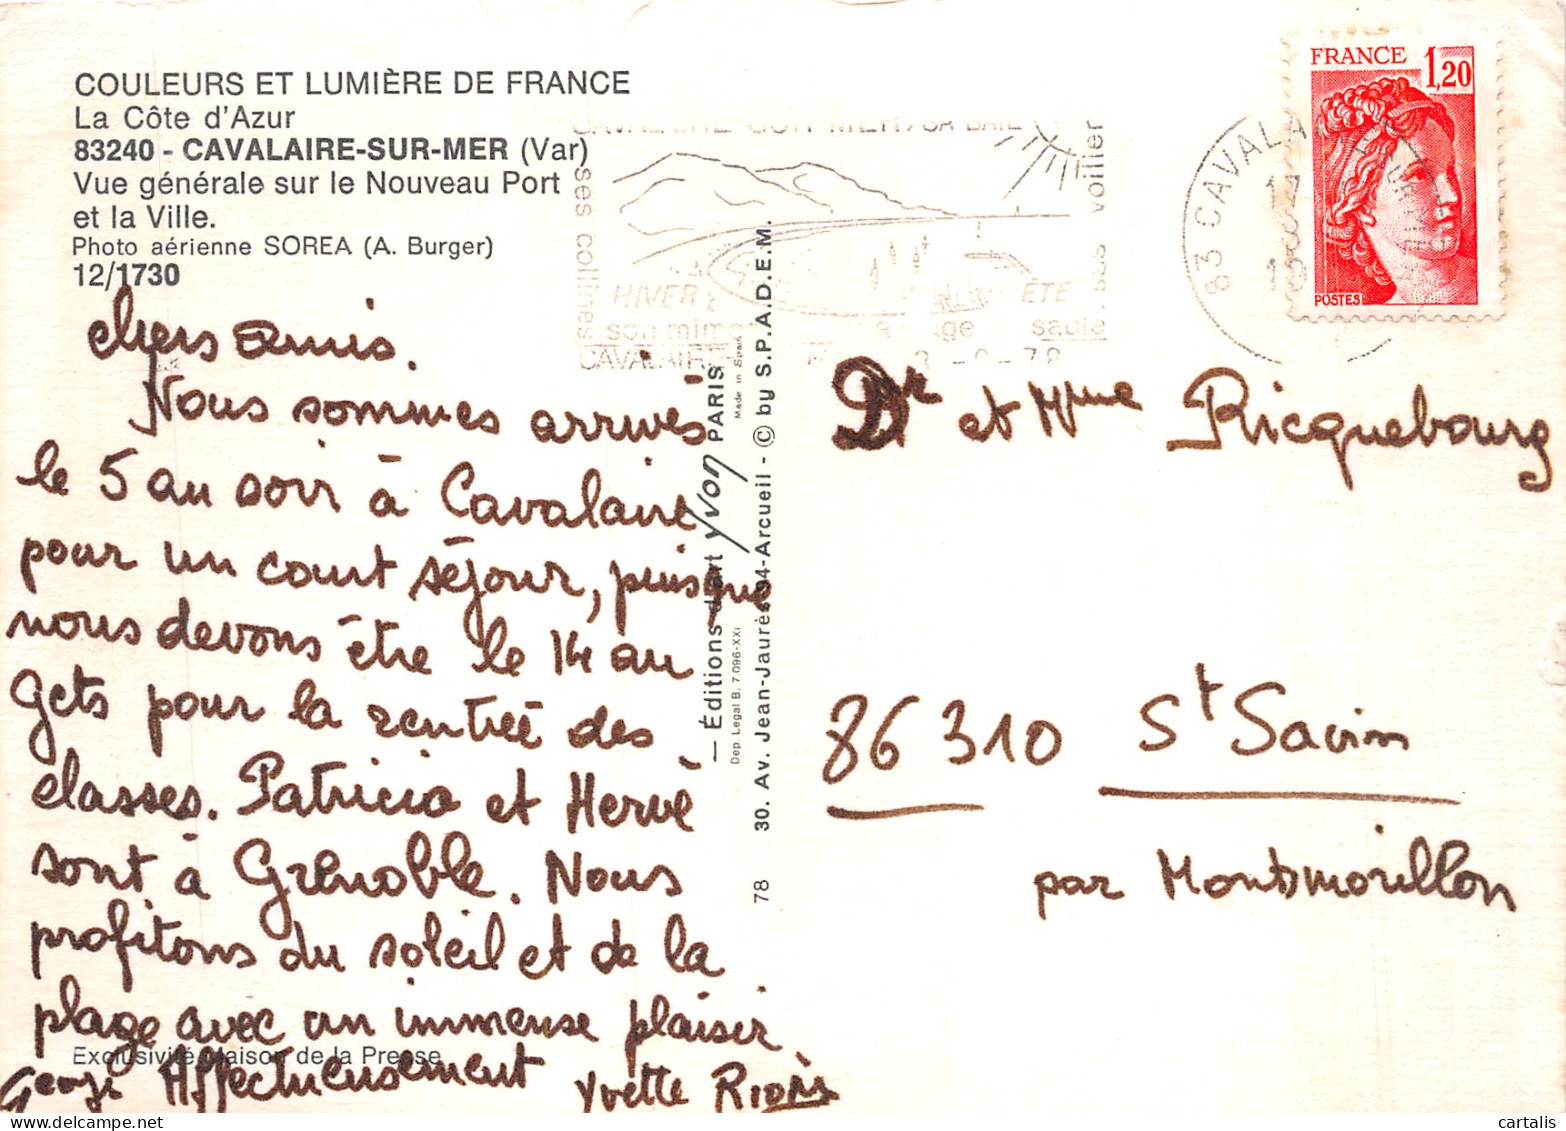 COULEURS ET LUMIÈRE DE FRANCE
La Côte d'Azur
83240 - CAVALAIRE-SUR-MER (Var)
Vue générale sur le Nouveau Port
et la Ville.
Photo aérienne SOREA (A. Burger)
12/1730
chers amis.
Nous sommes arrivés
le 5 au soir à Cavalaire
pour un court séjour, puisque
nous devons être le 14 au
Gets pour la rentrée des
classes. Patricia et Hervé
sont à Grenoble. Nous
profitons du soleil et de la
plage avec un immense plaisir
Exclusivité Maison de la Presse
Affectueusement
Yvette
— Éditions d'art yvon PARIS
Dep. Legal B. 7.096-XXI
Made in Spain
30. Av. Jean-Jaurès 94-Arcueil - © by S.P.A.D.E.M.
78
ses collines
voilier
HIVER
ÉTÉ
son mimosa
sable
83 CAVALAIRE
17
FRANCE 1,20
POSTES
Dr et Mme Ricquebourg
86310 St Savin
par Montmorillon
cartalis